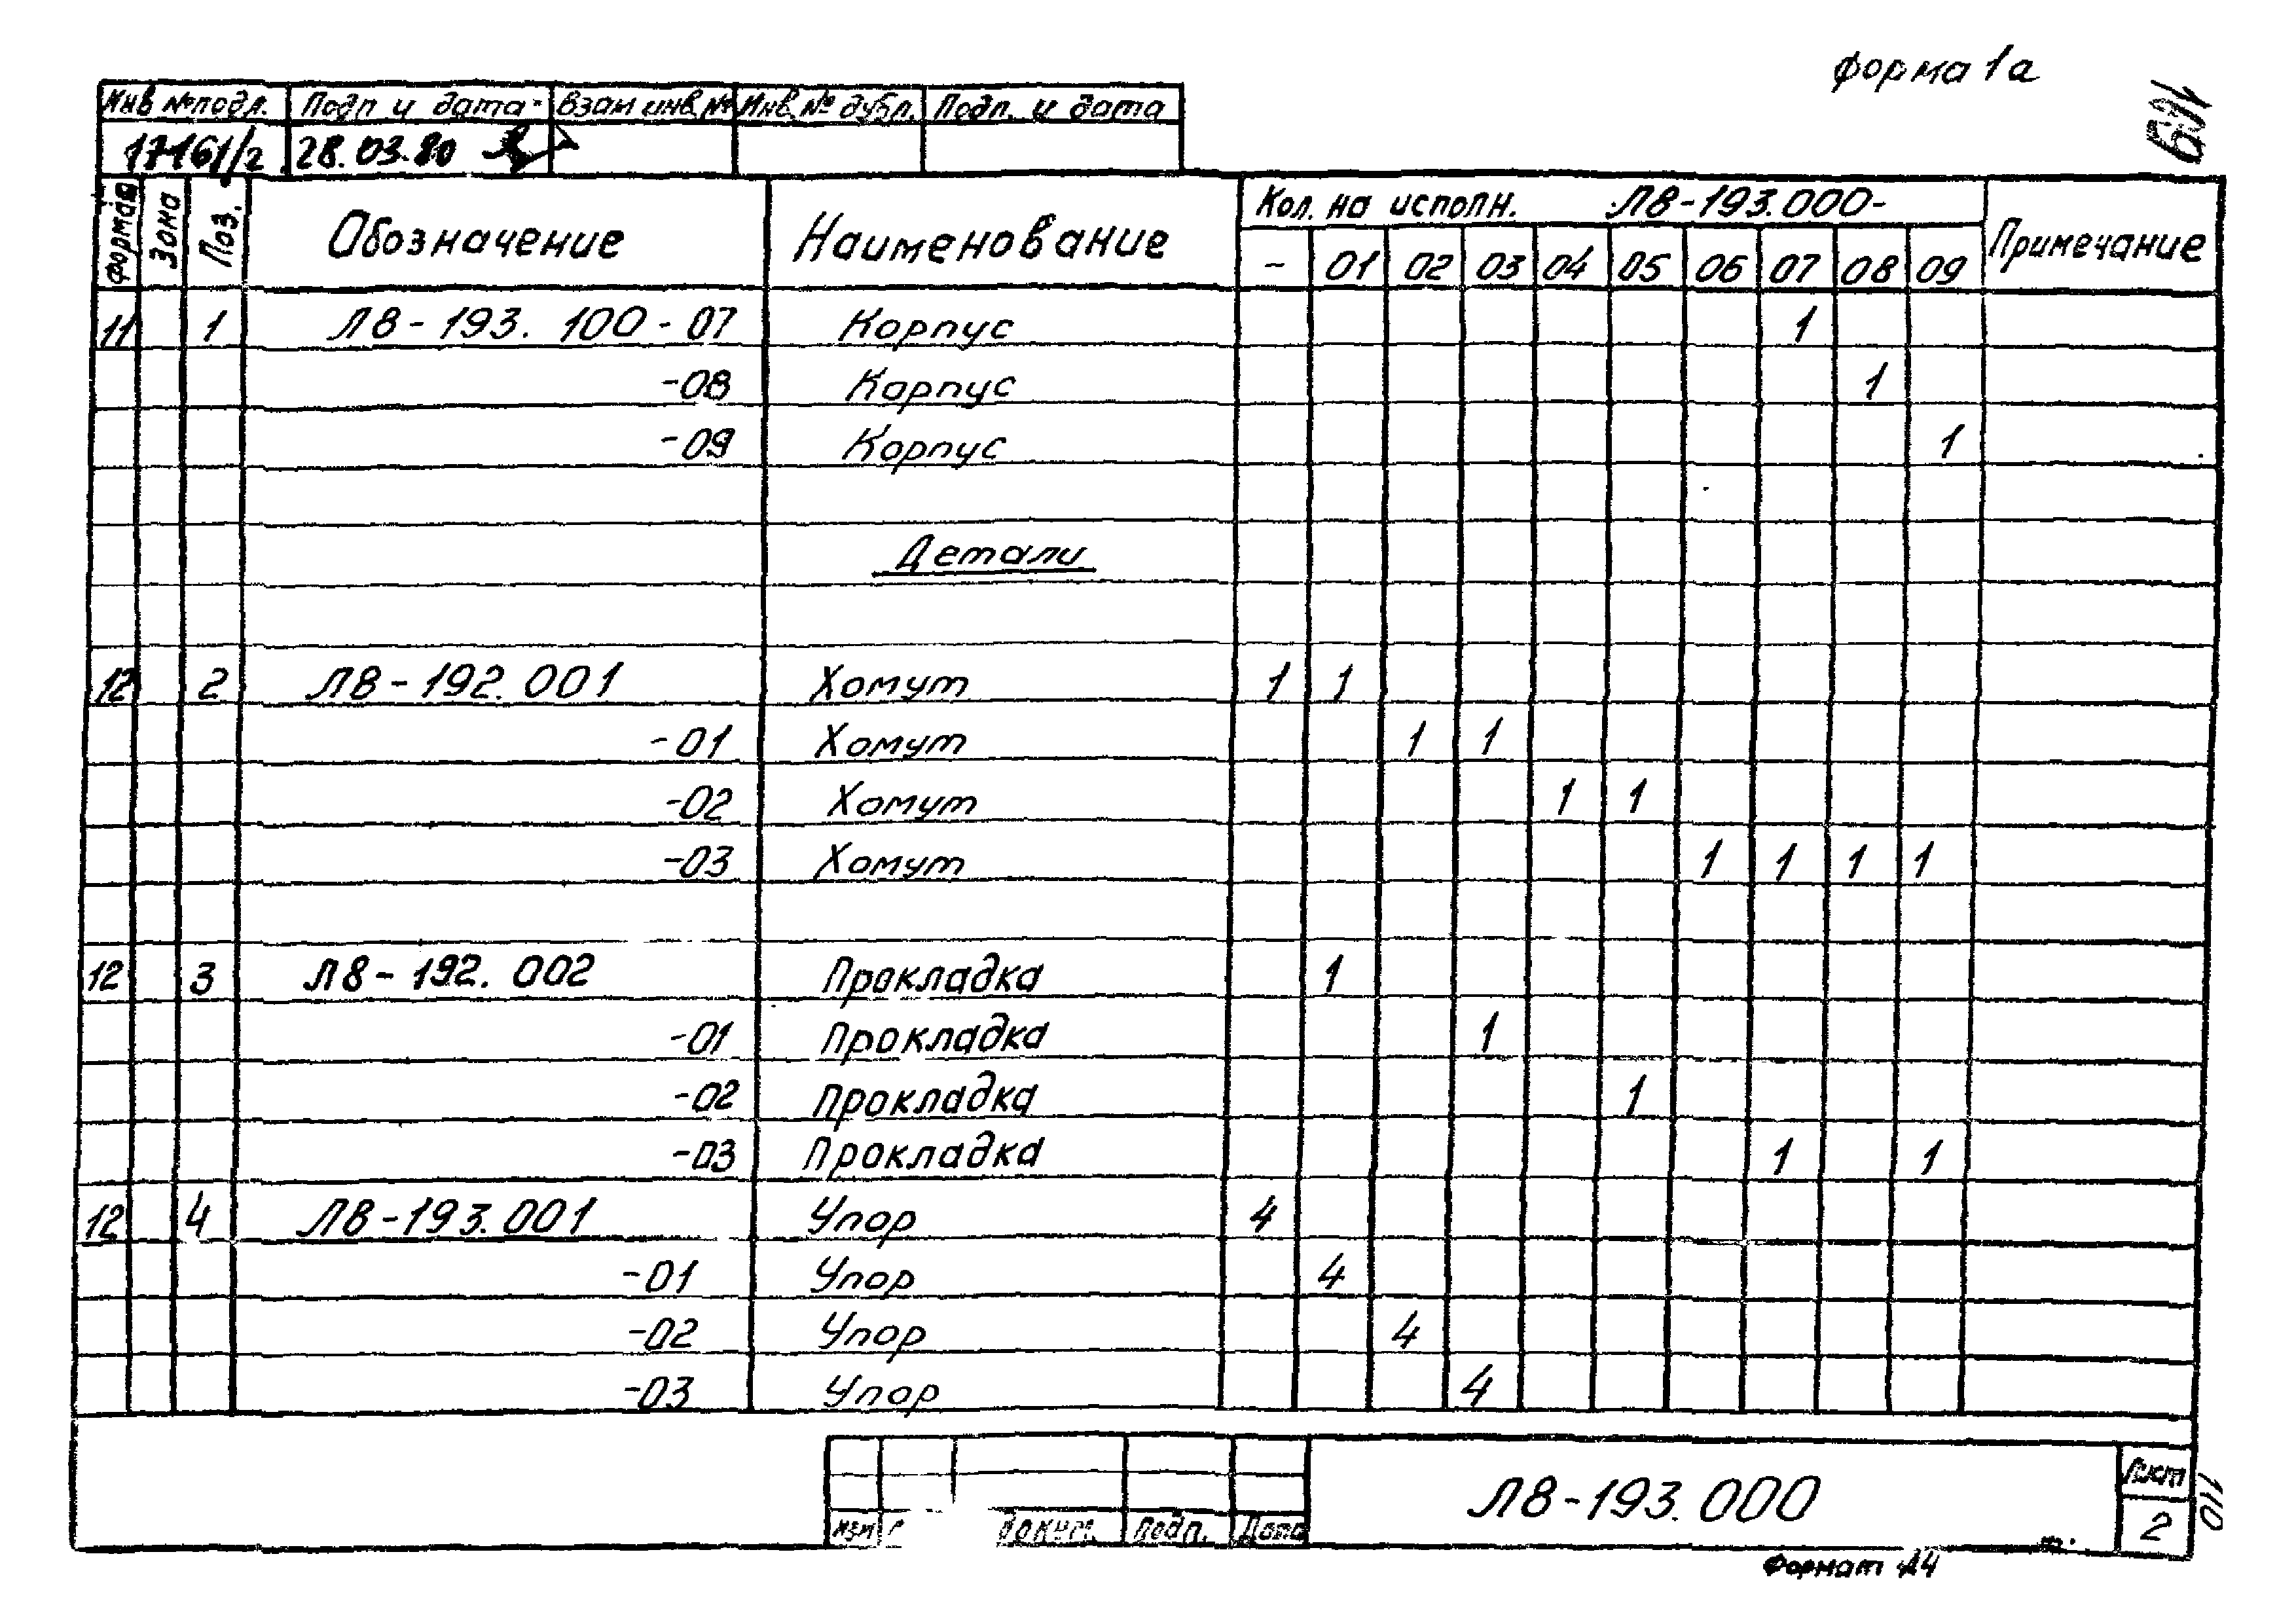 форма 1а
Инв №подл. Подп и дата взам инв.№ Инв.№ дубл. Подп. и дата
17161/2 28.03.80
формат Зона Поз. Обозначение Наименование Кол. на исполн. Л8-193.000- Примечание
- 01 02 03 04 05 06 07 08 09
11 1 Л8-193.100-07 Корпус 1
-08 Корпус 1
-09 Корпус 1
Детали
12 2 Л8-192.001 Хомут 1 1
-01 Хомут 1 1
-02 Хомут 1 1
-03 Хомут 1 1 1 1
12 3 Л8-192.002 Прокладка 1
-01 Прокладка 1
-02 Прокладка 1
-03 Прокладка 1 1
12 4 Л8-193.001 Упор 4
-01 Упор 4
-02 Упор 4
-03 Упор 4
Изм докум. Подп. Дата Л8-193.000 Лист
2
110
Формат А4